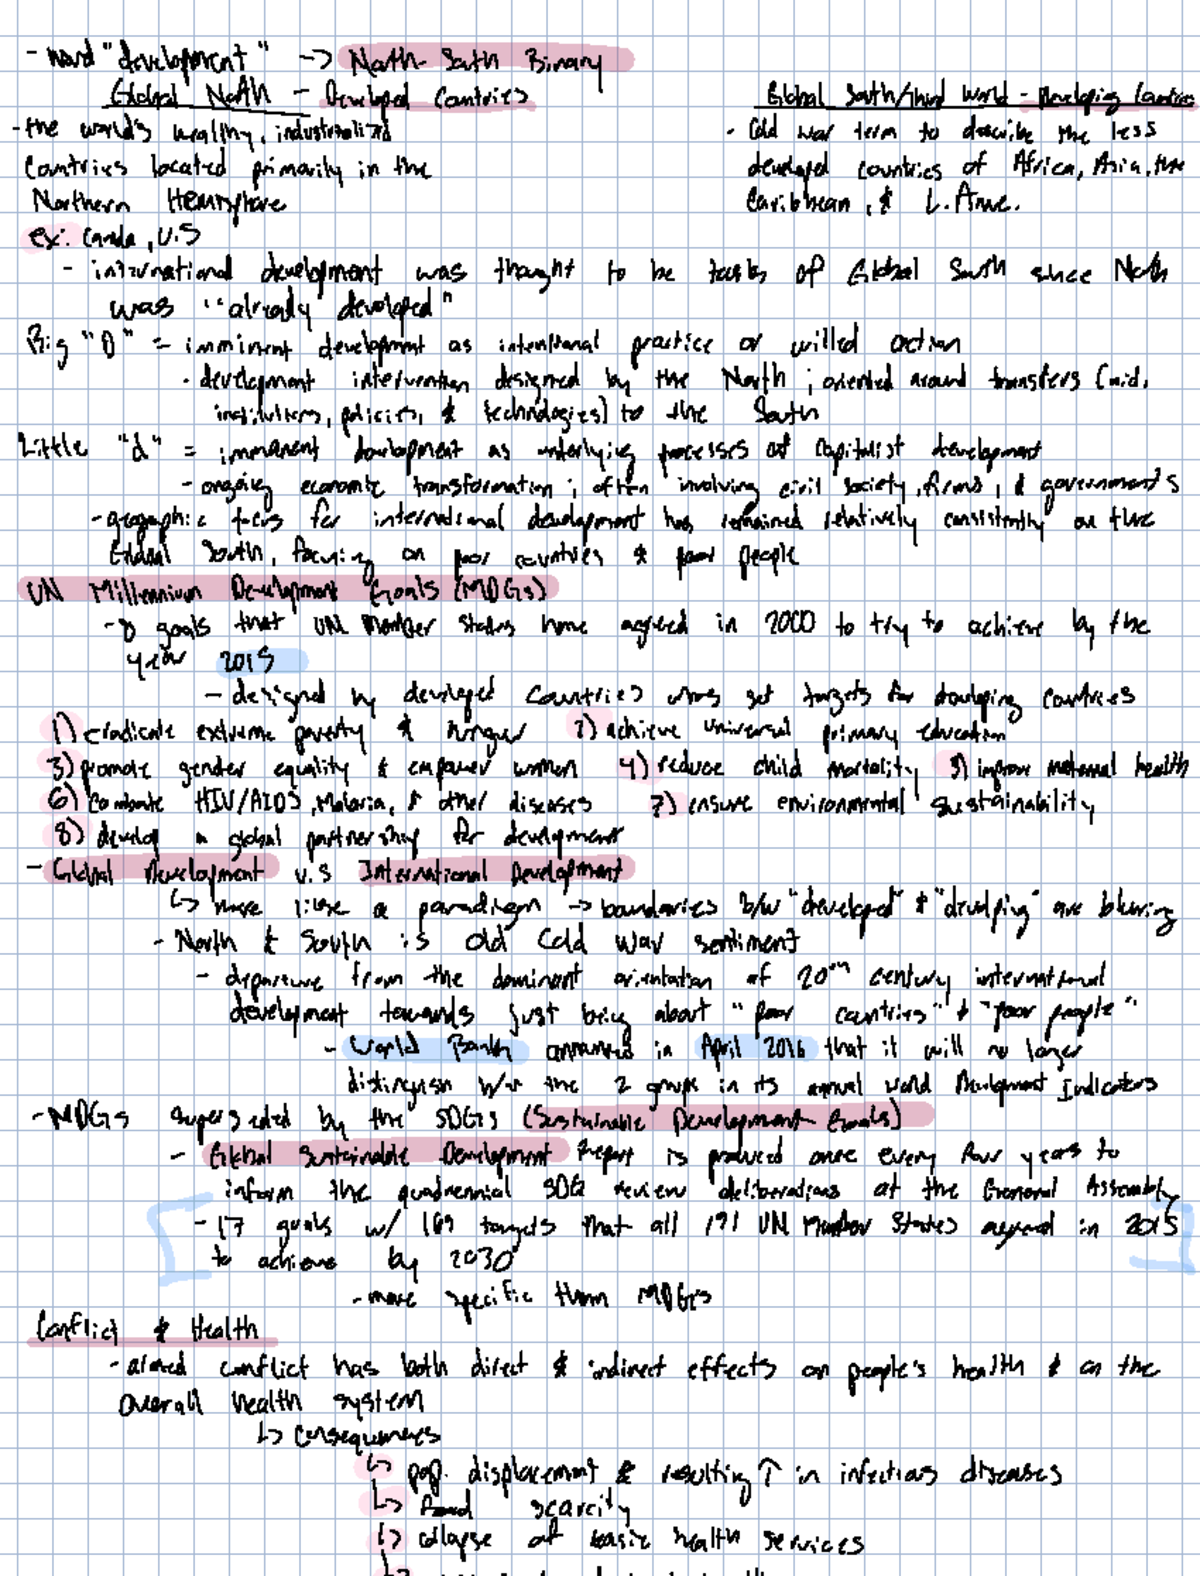 - word "development" -> North-South Binary
Global North - Developed Countries
Global South/third World - Developing Countries
- the world's wealthy, industrialized
countries located primarily in the
Northern Hemisphere
- Cold war term to describe the less
developed countries of Africa, Asia, the
Caribbean, & L. Ame.
ex: Canda, U.S
- international development was thought to be tasks of Global South since North
was "already developed"
Big "D" = imminent development as intentional practice or willed action
· development intervention designed by the North; oriented around transfers (aid,
institutions, policies, & technologies) to the South
Little "d" = immanent development as underlying processes of capitalist development
- ongoing economic transformation; often involving civil society, firms, & governments
- geographic focus for international development has remained relatively consistently on the
Global South, focusing on poor countries & poor people
UN Millennium Development Goals (MDGs)
- 8 goals that UN Member States have agreed in 2000 to try to achieve by the
year 2015
- designed by developed countries who set targets for developing countries
1) eradicate extreme poverty & hunger 2) achieve universal primary education
3) promote gender equality & empower women 4) reduce child mortality 5) improve maternal health
6) combate HIV/AIDS, Malaria, & other diseases 7) ensure environmental sustainability
8) develop a global partnership for development
- Global Development v.s International Development
↳ more like a paradigm -> boundaries b/w "developed" & "develping" are blurring
- North & South is old Cold War sentiment
- departure from the dominant orientation of 20th century international
development towards just being about "poor countries" & "poor people"
- World Bank announced in April 2016 that it will no longer
distinguish b/w the 2 groups in its annual World Development Indicators
- MDGs superseded by the SDGs (Sustainable Development Goals)
- Global Sustainable Development Report is produced once every four years to
inform the quadrennial SDG review deliberations at the General Assembly
- 17 goals w/ 169 targets that all 191 UN Member States agreed in 2015
to achieve by 2030
- more specific than MDGs
Conflict & Health
- armed conflict has both direct & indirect effects on people's health & on the
overall health system
↳ consequences
↳ pop. displacement & resulting ↑ in infectious diseases
↳ food scarcity
↳ collapse of basic health services